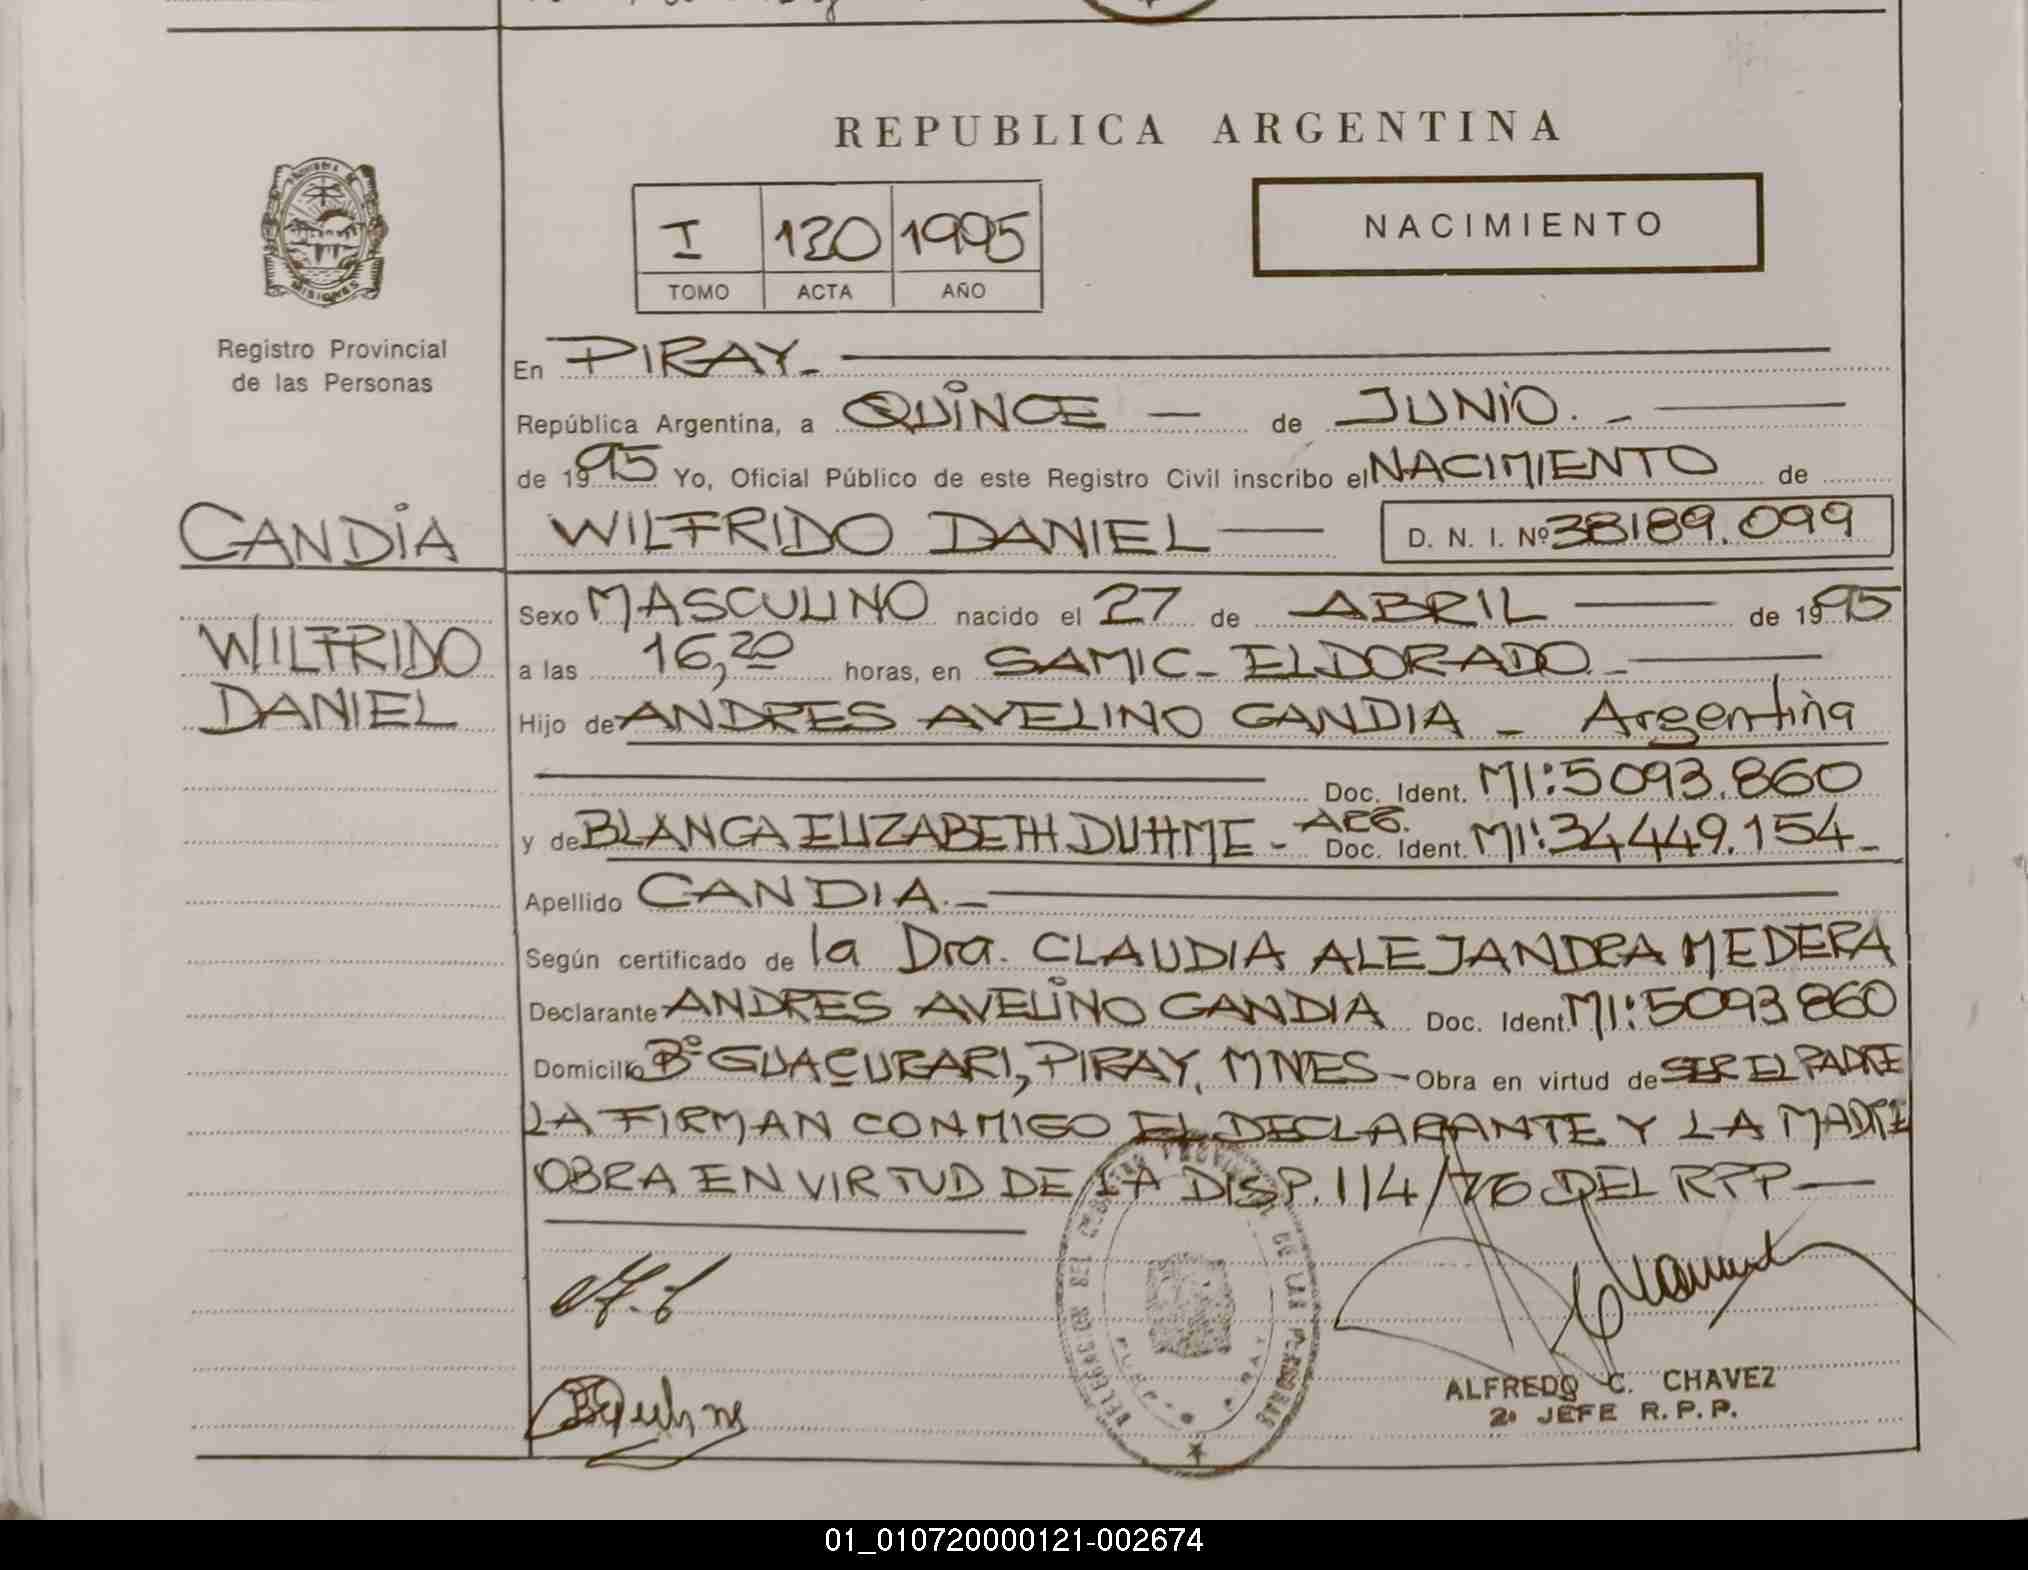 REPUBLICA ARGENTINA
MISIONES
Registro Provincial
de las Personas
I 120 1995
TOMO ACTA AÑO
NACIMIENTO
En PIRAY.-
República Argentina, a QUINCE — de JUNIO.-
de 1995 Yo, Oficial Público de este Registro Civil inscribo el NACIMIENTO de
CANDIA
WILFRIDO DANIEL — D. N. I. Nº 38189.099
WILFRIDO
DANIEL
Sexo MASCULINO nacido el 27 de ABRIL — de 1995
a las 16,20 horas, en SAMIC - ELDORADO.-
Hijo de ANDRES AVELINO CANDIA - Argentina
Doc. Ident. MI: 5093.860
y de BLANCA ELIZABETH DUHME - ARG. Doc. Ident. MI: 34449.154-
Apellido CANDIA.-
Según certificado de la Dra. CLAUDIA ALEJANDRA MEDERA
Declarante ANDRES AVELINO CANDIA Doc. Ident. MI: 5093860
Domicilio Bº GUACURARI, PIRAY, MNES - Obra en virtud de SER EL PADRE
LA FIRMAN CONMIGO EL DECLARANTE Y LA MADRE
OBRA EN VIRTUD DE LA DISP. 114/76 DEL RPP —
DELEGACION DEL REGISTRO PROVINCIAL DE LAS PERSONAS
ALFREDO C. CHAVEZ
2º JEFE R.P.P.
01_010720000121-002674